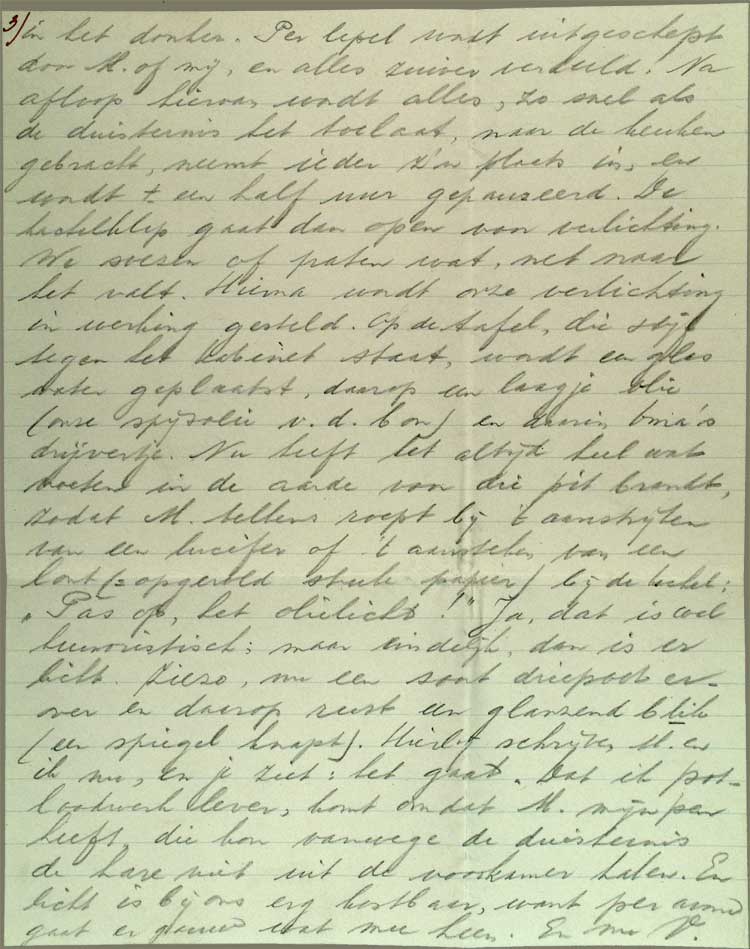 3/ in het donker. Per lepel wordt uitgeschept
door M. of mij, en alles zuiver verdeeld! Na
afloop hiervan wordt alles, zo snel als
de duisternis het toelaat, naar de keuken
gebracht, neemt ieder z'n plaats in, en
wordt ± een half uur gepauzeerd. De
kachelklep gaat dan open voor verlichting.
We soezen of praten wat, net naar
het valt. Hierna wordt onze verlichting
in werking gesteld. Op de tafel, die
tegen het kabinet staat, wordt een glas
water geplaatst, daarop een laagje olie
(onze spijsolie v.d. bon) en daarin Oma's
drijvertje. Nu heeft het altijd heel wat
voeten in de aarde voor die pit brandt,
zodat M. telkens roept bij 't aanstrijken
van een lucifer of 't aansteken van een
lont (= opgerold stuk papier) bij de kachel:
„Pas op, het olielicht!" Ja, dat is wel
humoristisch; maar eindelijk, dan is er
licht. Ziezo, nu een soort driepoot er-
over en daarop rust een glanzend blik
(een spiegel knapt). Hierbij schrijven M. en
ik nu, en je ziet: het gaat. Dat ik pot-
loodwerk lever, komt omdat M. mijn pen
heeft, die kon vanwege de duisternis
de hare niet uit de voorkamer halen. En
licht is bij ons erg kostbaar, want per avond
gaat er gauw wat mee heen. En nu V.